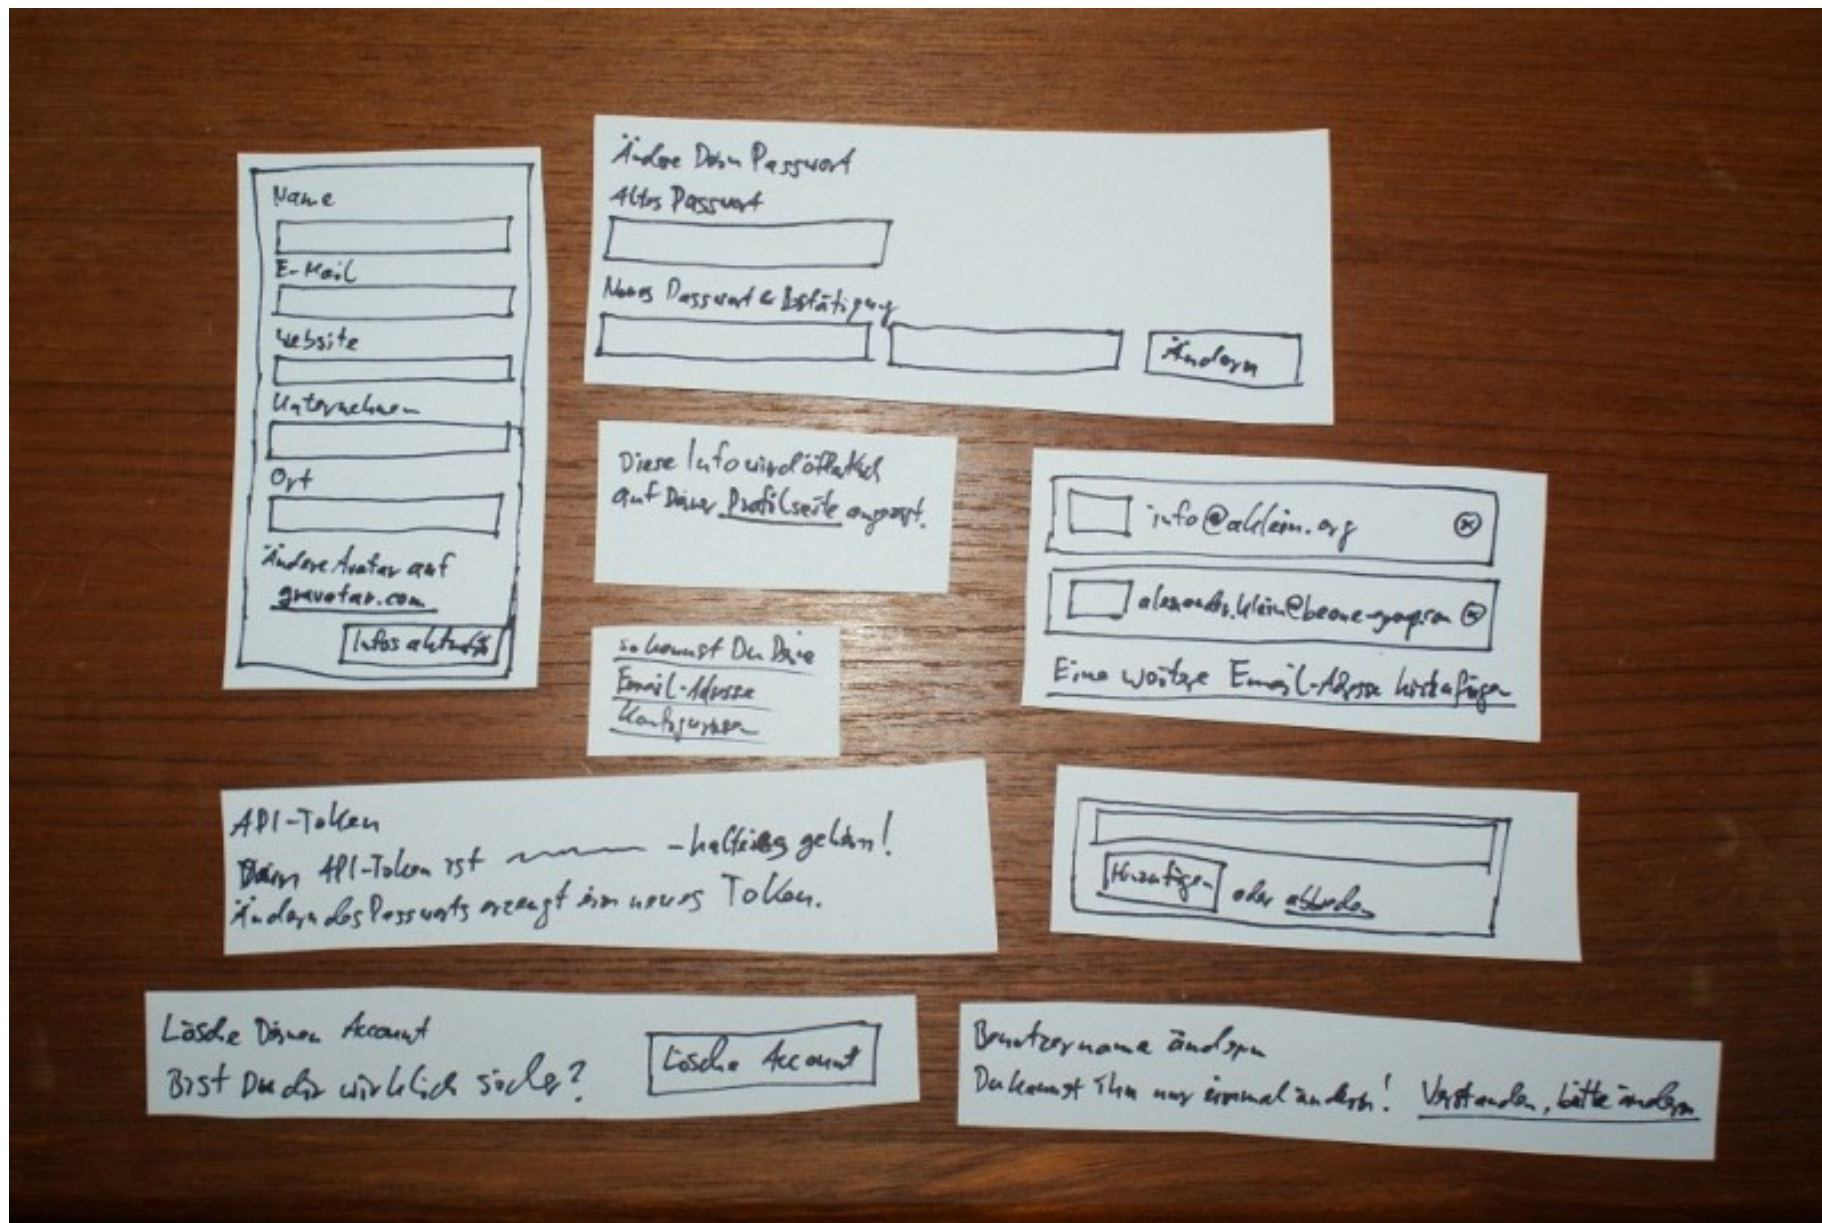 Name
E-Mail
Website
Unternehmen
Ort
Ändere Avatar auf
gravatar.com
Infos
Ändere Dein Passwort
Altes Passwort
Neues Passwort & Bestätigung
Ändern
Diese Info wird öffentlich
auf Deiner Profilseite angezeigt.
so kannst Du Deine
Email-Adresse
konfigurieren
info@aklein.org
alexander.klein@beone-group.com
Eine weitere Email-Adresse hinzufügen
API-Token
Dein API-Token ist - halte es geheim!
Ändern des Passworts erzeugt ein neues Token.
Hinzufügen oder abbrechen
Lösche Deinen Account
Bist Du dir wirklich sicher?
Lösche Account
Benutzername ändern
Du kannst ihn nur einmal ändern! Verstanden, bitte ändern